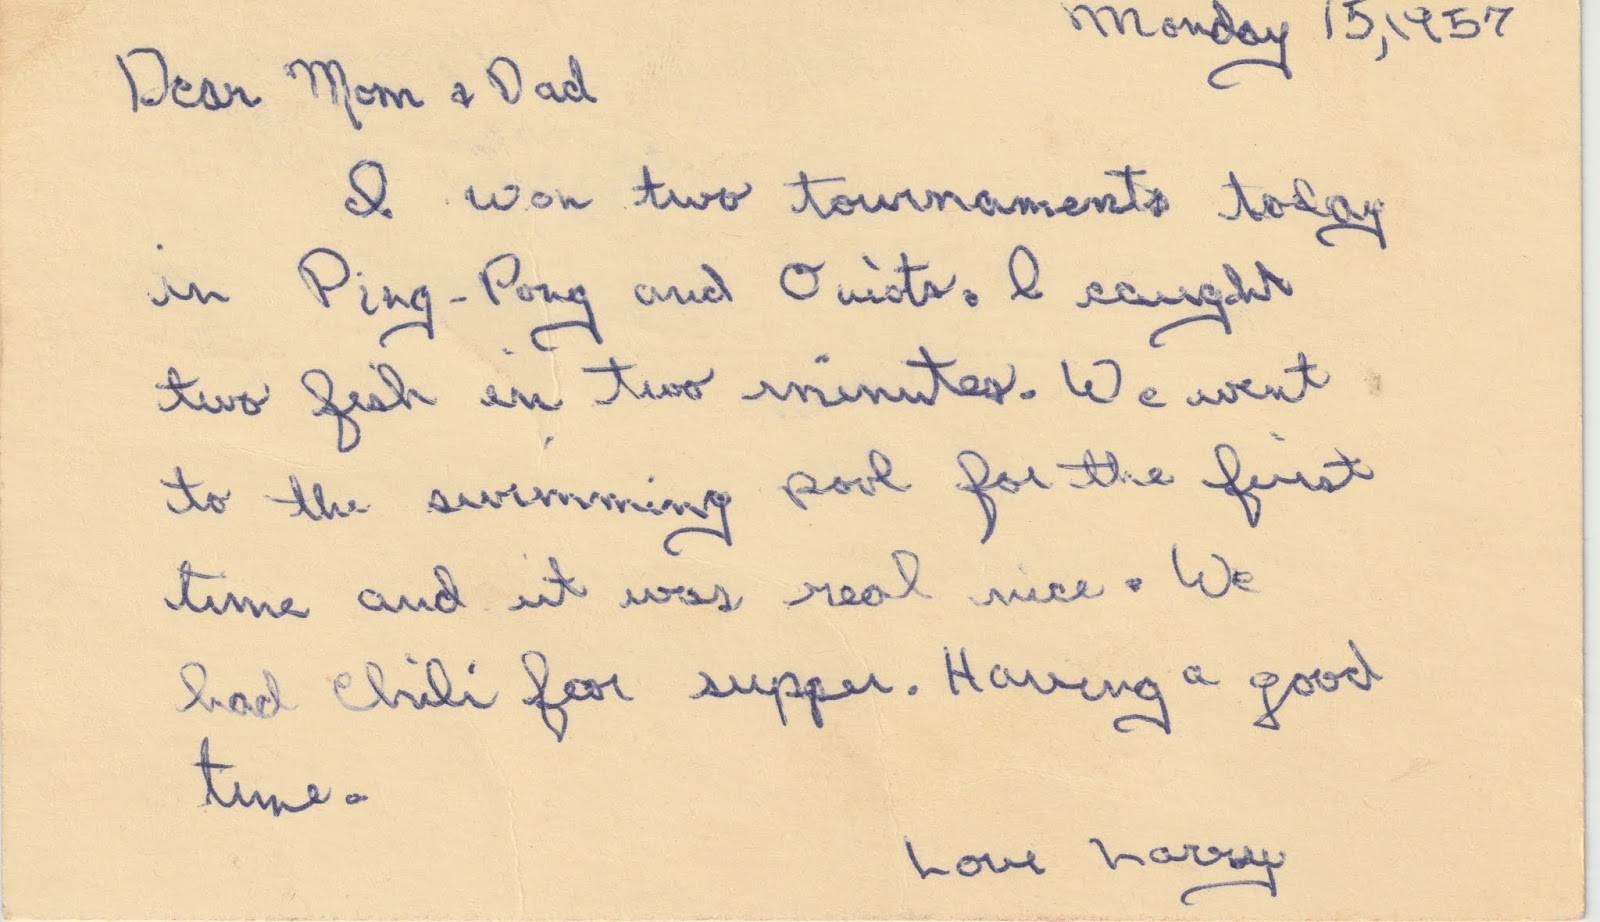 Monday 15, 1957
Dear Mom & Dad
I won two tournaments today
in Ping-Pong and Quiots. I caught
two fish in two minutes. We went
to the swimming pool for the first
time and it was real nice. We
had Chili for supper. Having a good
time.
Love Larry